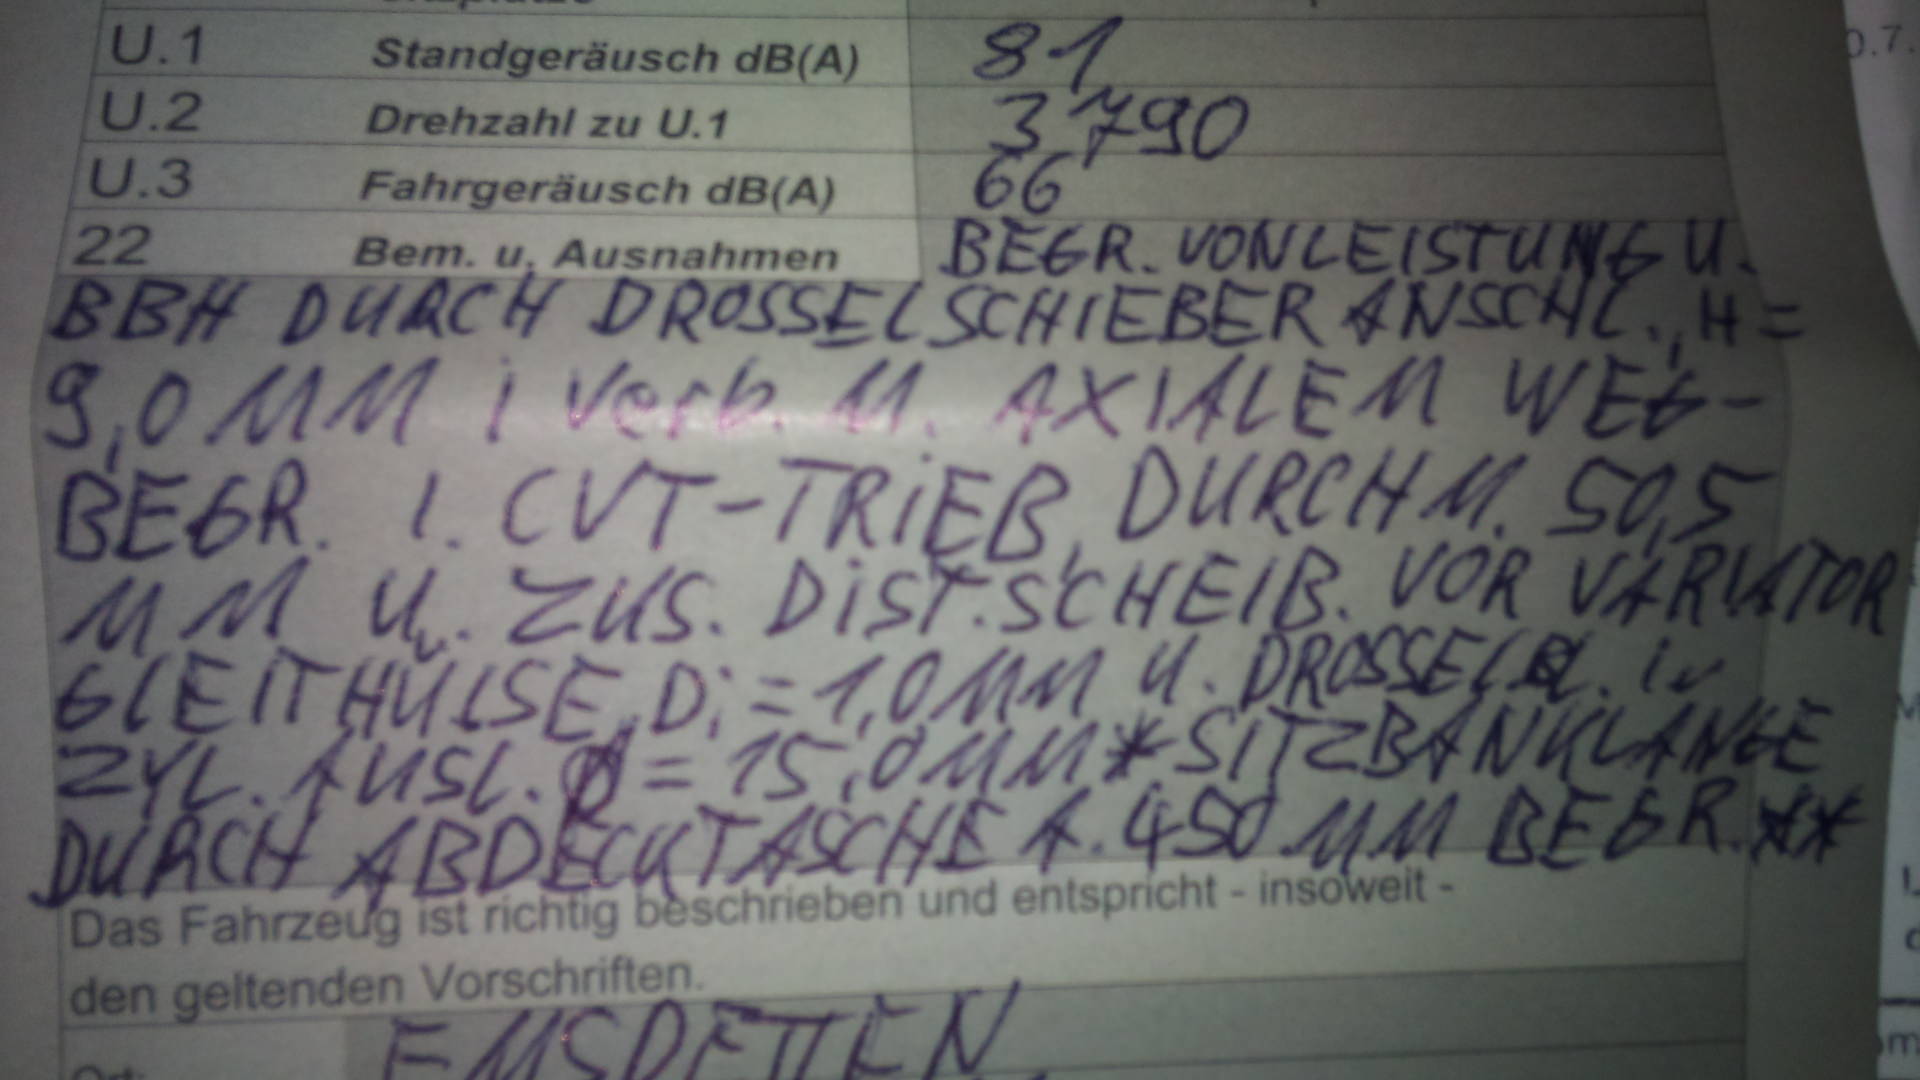 U.1 Standgeräusch dB(A) 81
U.2 Drehzahl zu U.1 3790
U.3 Fahrgeräusch dB(A) 66
22 Bem. u. Ausnahmen BEGR. VON LEISTUNG U.
BBH DURCH DROSSELSCHIEBER ANSCHL., H=
9,0 MM i Verb. M. AXIALEM WEG-
BEGR. I. CVT-TRIEB, DURCHM. 50,5
MM U. ZUS. DIST.SCHEIB. VOR VARIATOR
GLEITHÜLSE, Di=1,0MM U. DROSSELBL. i.
ZYL. AUSL. Ø=15,0MM*SITZBANKLÄNGE
DURCH ABDECKTASCHE A. 450 MM BEGR.**
Das Fahrzeug ist richtig beschrieben und entspricht - insoweit -
den geltenden Vorschriften.
Ort: EMSDETTEN